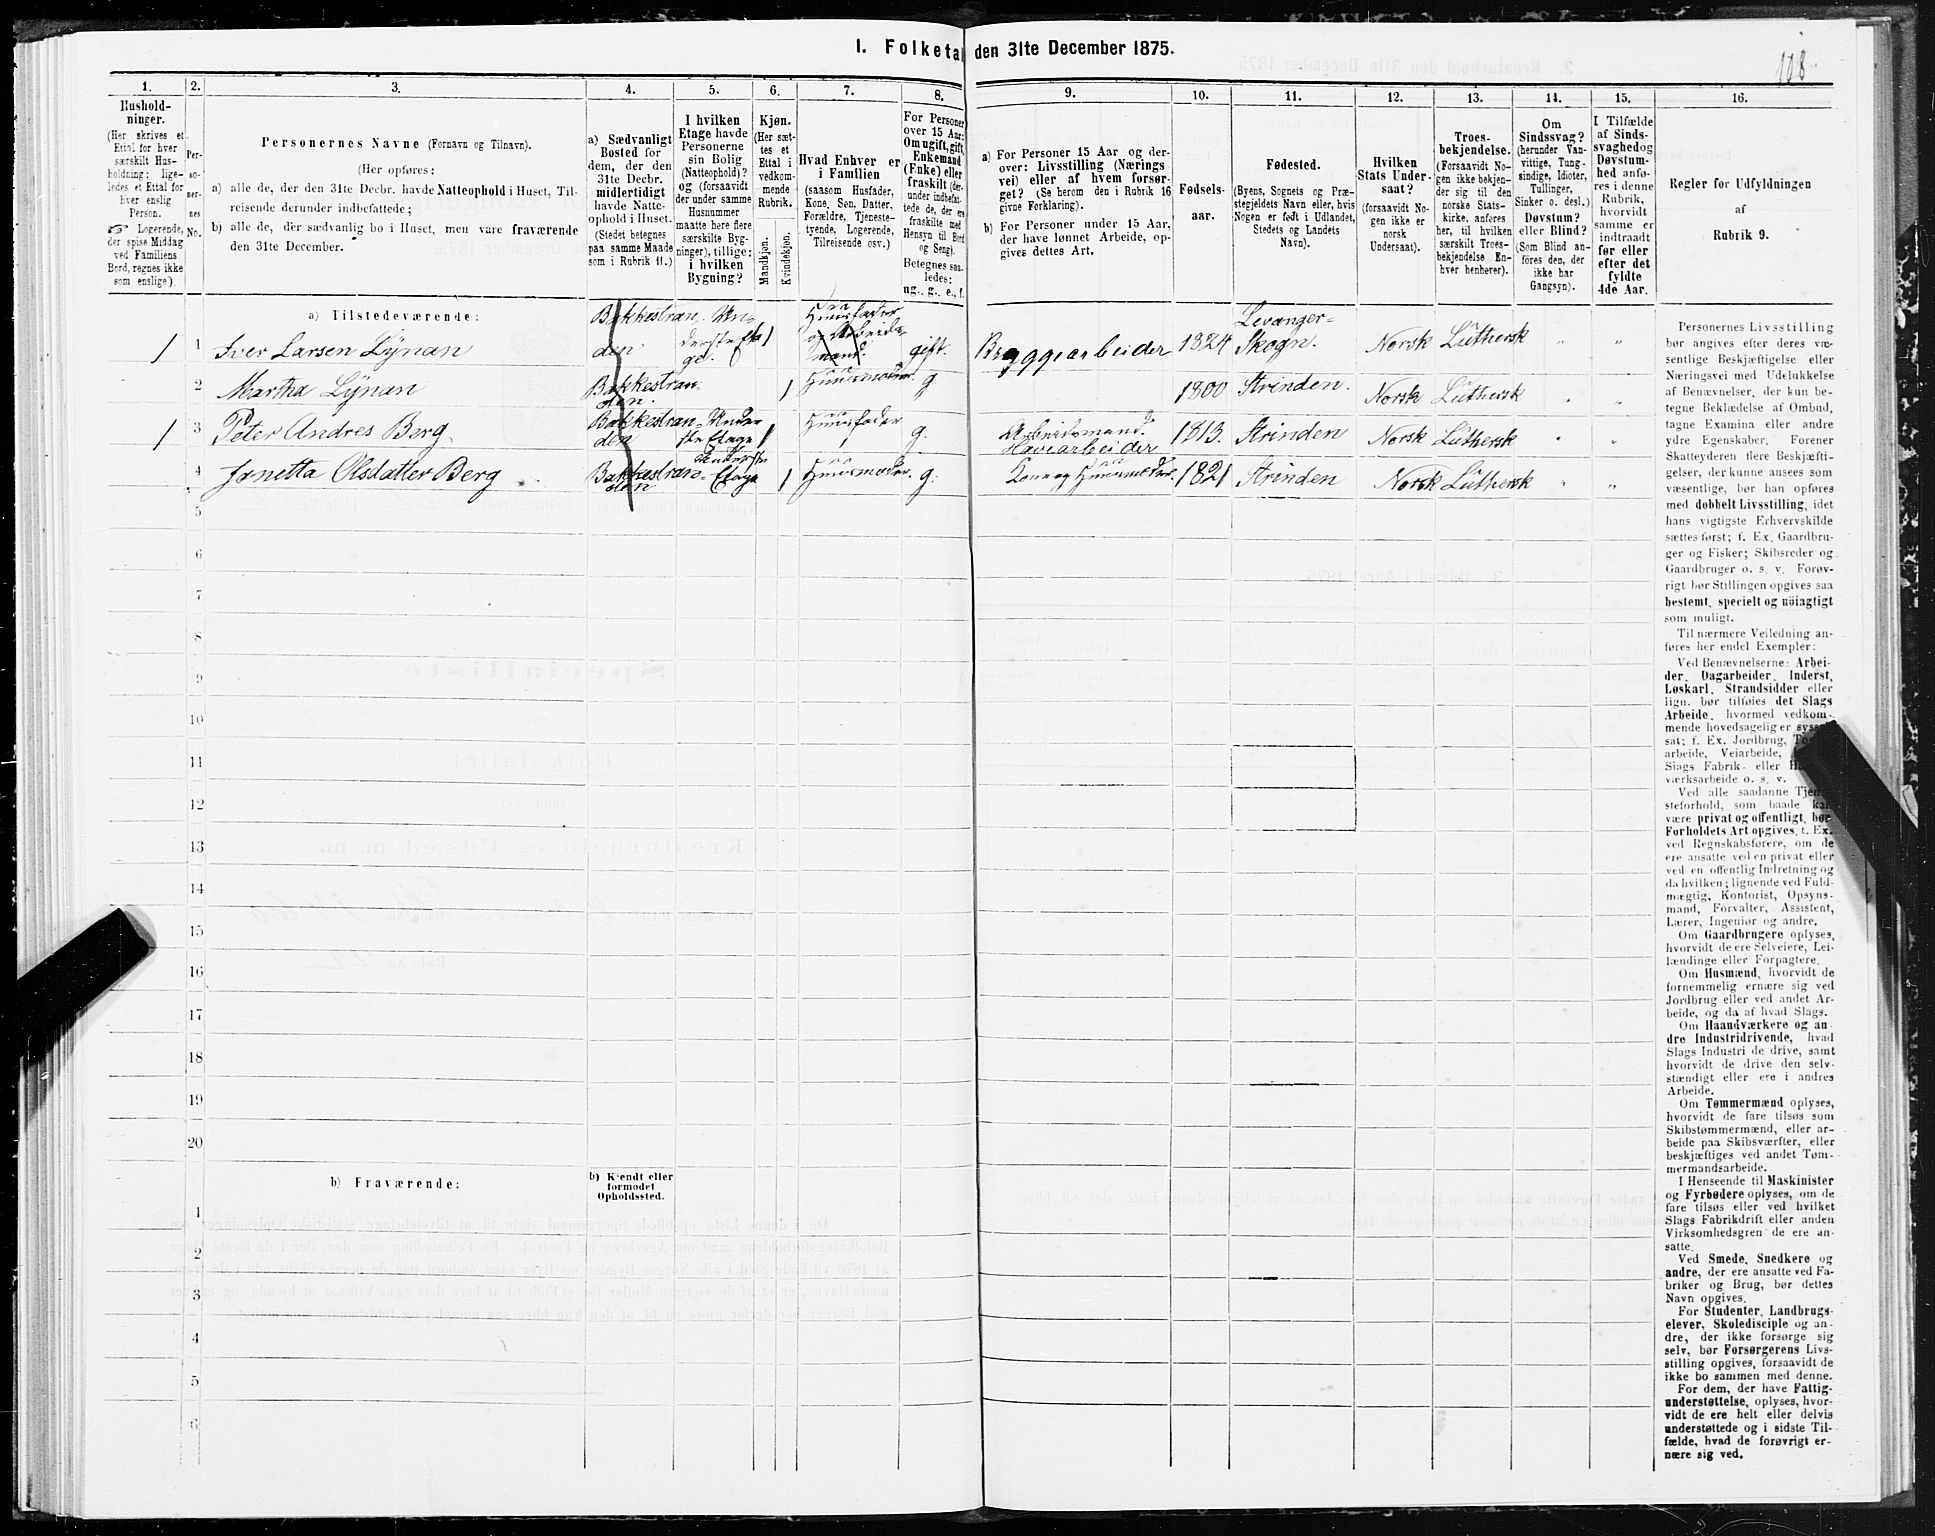 I. Folketal den 31te December 1875.
108
1.
2.
3.
4.
5.
6.
7.
8.
9.
10.
11.
12.
13.
14.
15.
16.
Hushold-
ninger.
(Her skrives et
Ettal for hver
særskilt Hus-
holdning; lige-
ledes et Ettal for
hver enslig
Person.
☞ Logerende,
der spise Middag
ved Familiens
Bord, regnes ikke
som enslige).
Per-
so-
ner-
nes
No.
Personernes Navne (Fornavn og Tilnavn).
(Her opføres:
a) alle de, der den 31te Decbr. havde Natteophold i Huset, Til-
reisende derunder indbefattede;
b) alle de, der sædvanlig bo i Huset, men vare fraværende
den 31te December.
a) Sædvanligt
Bosted for
dem, der den
31te Decbr.
midlertidigt
havde Natte-
ophold i Huset.
(Stedet betegnes
paa samme Maade
som i Rubrik 11.)
I hvilken
Etage havde
Personerne
sin Bolig
(Natteophold)?
og (forsaavidt
der under samme
Husnummer
maatte høre flere
særskilte Byg-
ninger), tillige:
i hvilken
Bygning?
Kjøn.
(Her sæt-
tes et
Ettal i
vedkom-
mende
Rubrik.
Mandkjøn.
Kvindekjøn.
Hvad Enhver er
i Familien
(saasom Husfader,
Kone, Søn, Datter,
Forældre, Tjeneste-
tyende, Logerende,
Tilreisende osv.)
For Personer
over 15 Aar:
Om ugift, gift,
Enkemand
(Enke) eller
fraskilt (der-
under indbefat-
tede de, der ere
fraskilte med
Hensyn til Bord
og Seng).
Betegnes saa-
ledes:
ug., g., e., f.
a) For Personer 15 Aar og der-
over: Livsstilling (Nærings-
vei) eller af hvem forsør-
get? (Se herom den i Rubrik 16
givne Forklaring).
b) For Personer under 15 Aar,
der have lønnet Arbeide, op-
gives dettes Art.
Fødsels-
aar.
Fødested.
(Byens, Sognets og Præ-
stegjeldets Navn eller, hvis
Nogen er født i Udlandet,
Stedets og Landets
Navn).
Hvilken
Stats Under-
saat?
(forsaavidt No-
gen ikke er
norsk
Undersaat).
Troes-
bekjendelse.
(Forsaavidt No-
gen ikke bekjen-
der sig til den
norske Stats-
kirke, anføres
her, til hvilken
særskilt Troes-
bekjendelse En-
hver henhører).
Om
Sindssvag?
(herunder Van-
vittige, Tung-
sindige, Idioter,
Tullinger,
Sinker o. desl.)
Døvstum?
eller Blind?
(Som Blind an-
føres den, der
ikke har
Gangsyn).
I Tilfælde
af Sinds-
svaghed og
Døvstum-
hed anfø-
res i denne
Rubrik,
hvorvidt
samme er
indtraadt
før eller
efter det
fyldte
4de Aar.
Regler for Udfyldningen
af
Rubrik 9.
a) Tilstedeværende:
1 1 Iver Larsen Lÿnan Bakkestranden Underste Etage 1 Huusfader og Arbeidsmand. gift. Bryggearbeider 1824 Levanger-Skogn. Norsk Lüthersk " "
2 Martha Lÿnan Bakkestranden. 1 Huusmoder. g 1800 Strinden. Norsk Lüthersk " "
1 3 Peter Andres Berg. Bakkestranden Underste Etage 1 Huusfader g. Arbeidsmand. Havearbeider 1813. Strinden Norsk Lüthersk " "
4 Janetta Olsdatter Berg Bakkestranden Underste Etage 1 Huusmoder. g. Kone og Huusmoder. 1821 Strinden Norsk Lüthersk " "
5
6
7
8
9
10
11
12
13
14
15
16
17
18
19
20
b) Fraværende:
b) Kjendt eller
formodet
Opholdssted.
1
2
3
4
5
6
Personernes Livsstilling
bør angives efter deres væ-
sentlige Beskjæftigelse eller
Næringsvei med Udelukkelse
af Benævnelser, der kun be-
tegne Beklædelse af Ombud,
tagne Examina eller andre
ydre Egenskaber. Forener
Skatteyderen flere Beskjæfti-
gelser, der kunne ansees som
væsentlige, bør han opføres
med dobbelt Livsstilling, idet
hans vigtigste Erhvervskilde
sættes først; f. Ex. Gaardbru-
ger og Fisker; Skibsreder og
Gaardbruger o. s. v. Forøv-
rigt bør Stillingen opgives saa
bestemt, specielt og nöiagtigt
som muligt.
Til nærmere Veiledning an-
føres her endel Exempler:
Ved Benævnelserne: Arbei-
der, Dagarbeider, Inderst,
Løskarl, Strandsidder eller
lign. bør tilføies det Slags
Arbeide, hvormed vedkom-
mende hovedsagelig er syssel-
sat; f. Ex. Jordbrug,
arbeide, Veiarbeide,
Slags Fabrik- eller
værksarbeide o. s. v.
Ved alle saadanne Tjene-
steforhold, som baade kan
være privat og offentligt, bør
Forholdets Art opgives, t. Ex.
ved Regnskabsførere, om de
ere ansatte ved en privat eller
ved en offentlig Indretning og
da hvilken; lignende ved Fuld-
mægtig, Kontorist, Opsyns-
mand, Forvalter, Assistent,
Lærer, Ingeniør og andre.
Om Gaardbrugere oplyses,
hvorvidt de ere Selveiere, Lei-
lændinge eller Forpagtere.
Om Husmænd, hvorvidt de
fornemmelig ernære sig ved
Jordbrug eller ved andet Ar-
beide, og da af hvad Slags.
Om Haandværkere og an-
dre Industridrivende, hvad
Slags Industri de drive, samt
hvorvidt de drive den selv-
stændigt eller ere i andres
Arbeide.
Om Tømmermænd oplyses,
hvorvidt de fare tilsøs som
Skibstømmermænd, eller ar-
beide paa Skibsværfter, eller
beskjæftiges ved andet Tøm-
mermandsarbeide.
I Henseende til Maskinister
og Fyrbødere oplyses, om de
fare tilsøs eller ved hvilket
Slags Fabrikdrift eller anden
Virksomhedsgren de ere an-
satte.
Ved Smede, Snedkere og
andre, der ere ansatte ved Fa-
briker og Brug, bør dettes
Navn opgives.
For Studenter, Landbrugs-
elever, Skoledisciple og an-
dre, der ikke forsørge sig
selv, bør Forsørgerens Livs-
stilling opgives, forsaavidt de
ikke bo sammen med denne.
For dem, der have Fattig-
understøttelse, oplyses, hvor-
vidt de ere helt eller delvis
understøttede og i sidste Til-
fælde, hvad de forøvrigt er-
nære sig ved.